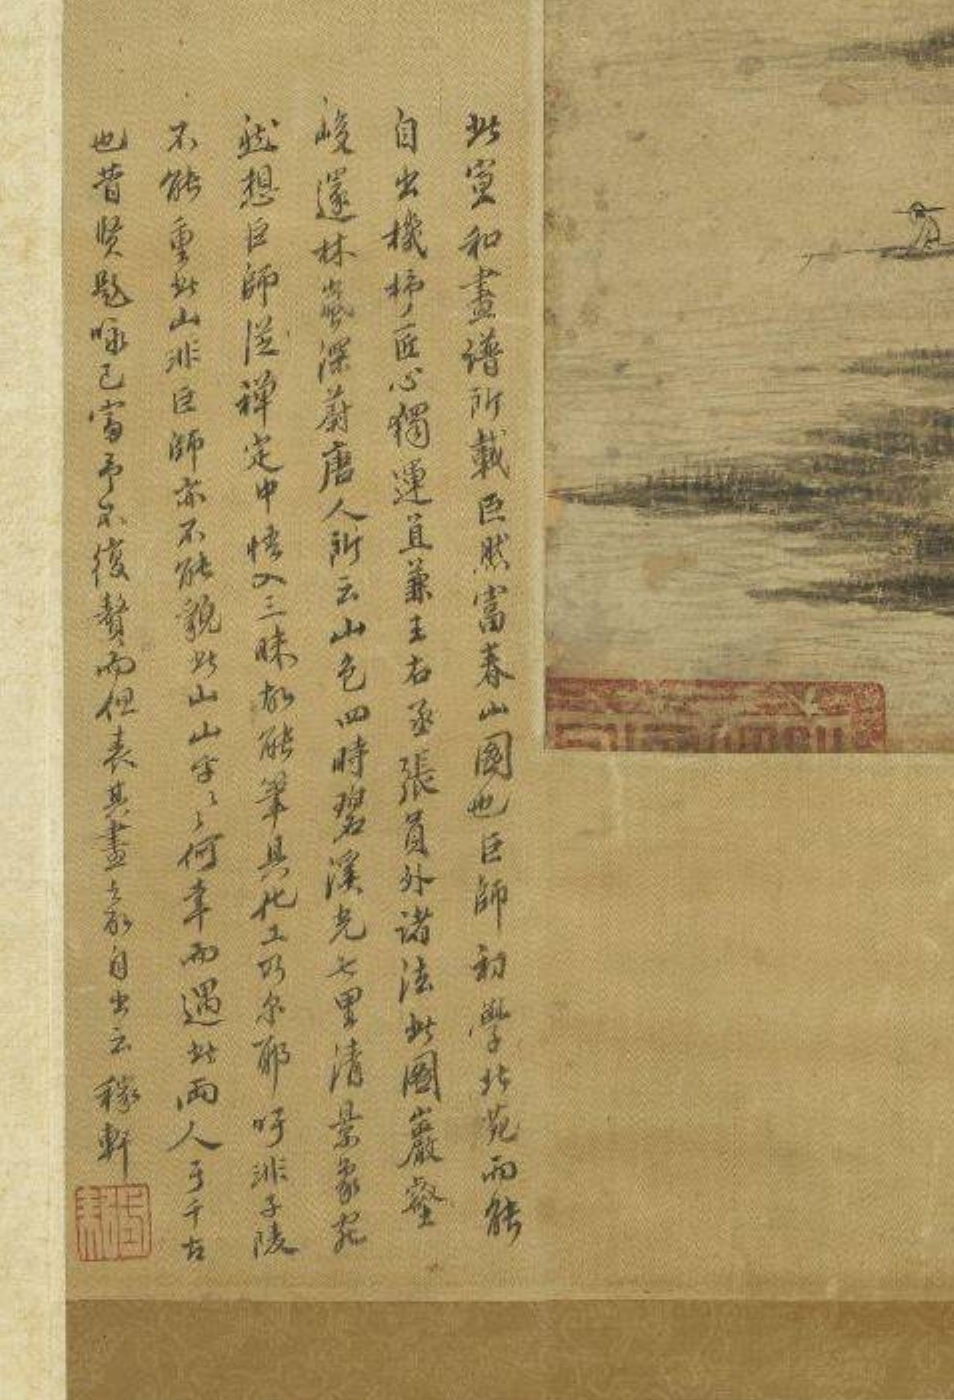 此宣和畫譜所載巨然富春山圖也巨師初學北苑而能
自出機杼匠心獨運直兼王右丞張員外諸法此圖巖壑
峻邃林巒深蔚唐人所云山色四時碧溪光七里清景象宛
然想巨師從禪定中悟入三昧故能筆具化工乃尔耶吁非子陵
不能重此山非巨師亦不能貌此山山乎山乎何幸而遇此兩人于千古
也昔賢題咏已富予不復贅而但表其畫家自出云稼軒